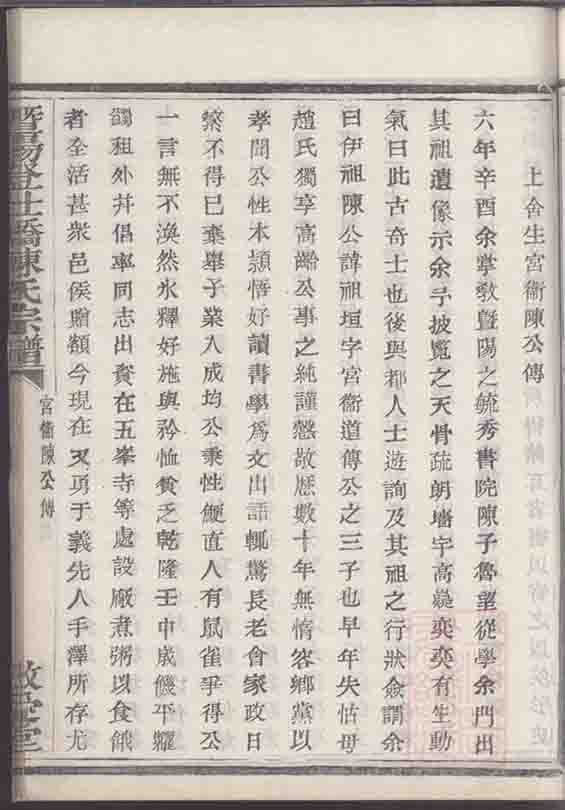 上舍生宮衞陳公傳
六年辛酉余掌敎曁陽之毓秀書院陳子魯望從學余門出
其祖遺像示余予披覽之天骨疏朗墻宇高嶷奕奕有生動
氣曰此古奇士也後與都人士遊詢及其祖之行狀僉謂余
曰伊祖陳公諱祖垣字宮衞道傳公之三子也早年失怙母
趙氏獨享高齡公事之純謹懇敬歴數十年無惰容鄉黨以
孝聞公性本頴悟好讀書學爲文出語輒驚長老會家政日
繁不得已棄舉子業入成均公秉性鯁直人有鼠雀爭得公
一言無不渙然氷釋好施與矜恤貧乏乾隆壬申歲饑平糶
蠲租外幷倡率同志出資在五峯寺等處設厰煮粥以食餓
者全活甚衆邑侯贈額今現在又勇于義先人手澤所存尤
曁陽登仕橋陳氏宗譜
宮衞陳公傳